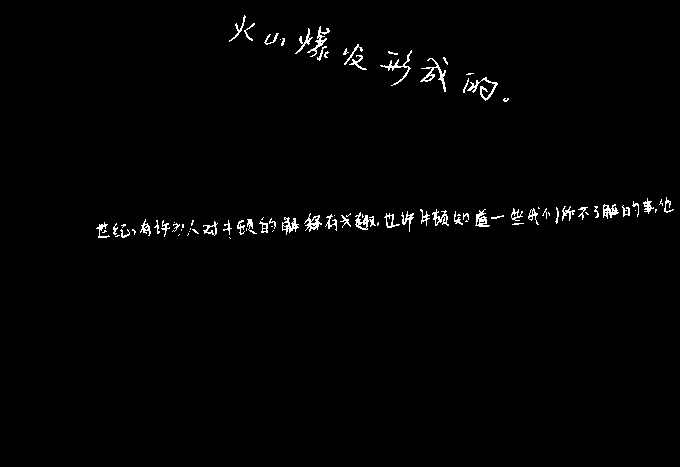 火山爆发形成的。
世纪,有许多人对牛顿的解释有兴趣,也许牛顿知道一些我们所不了解的事,他